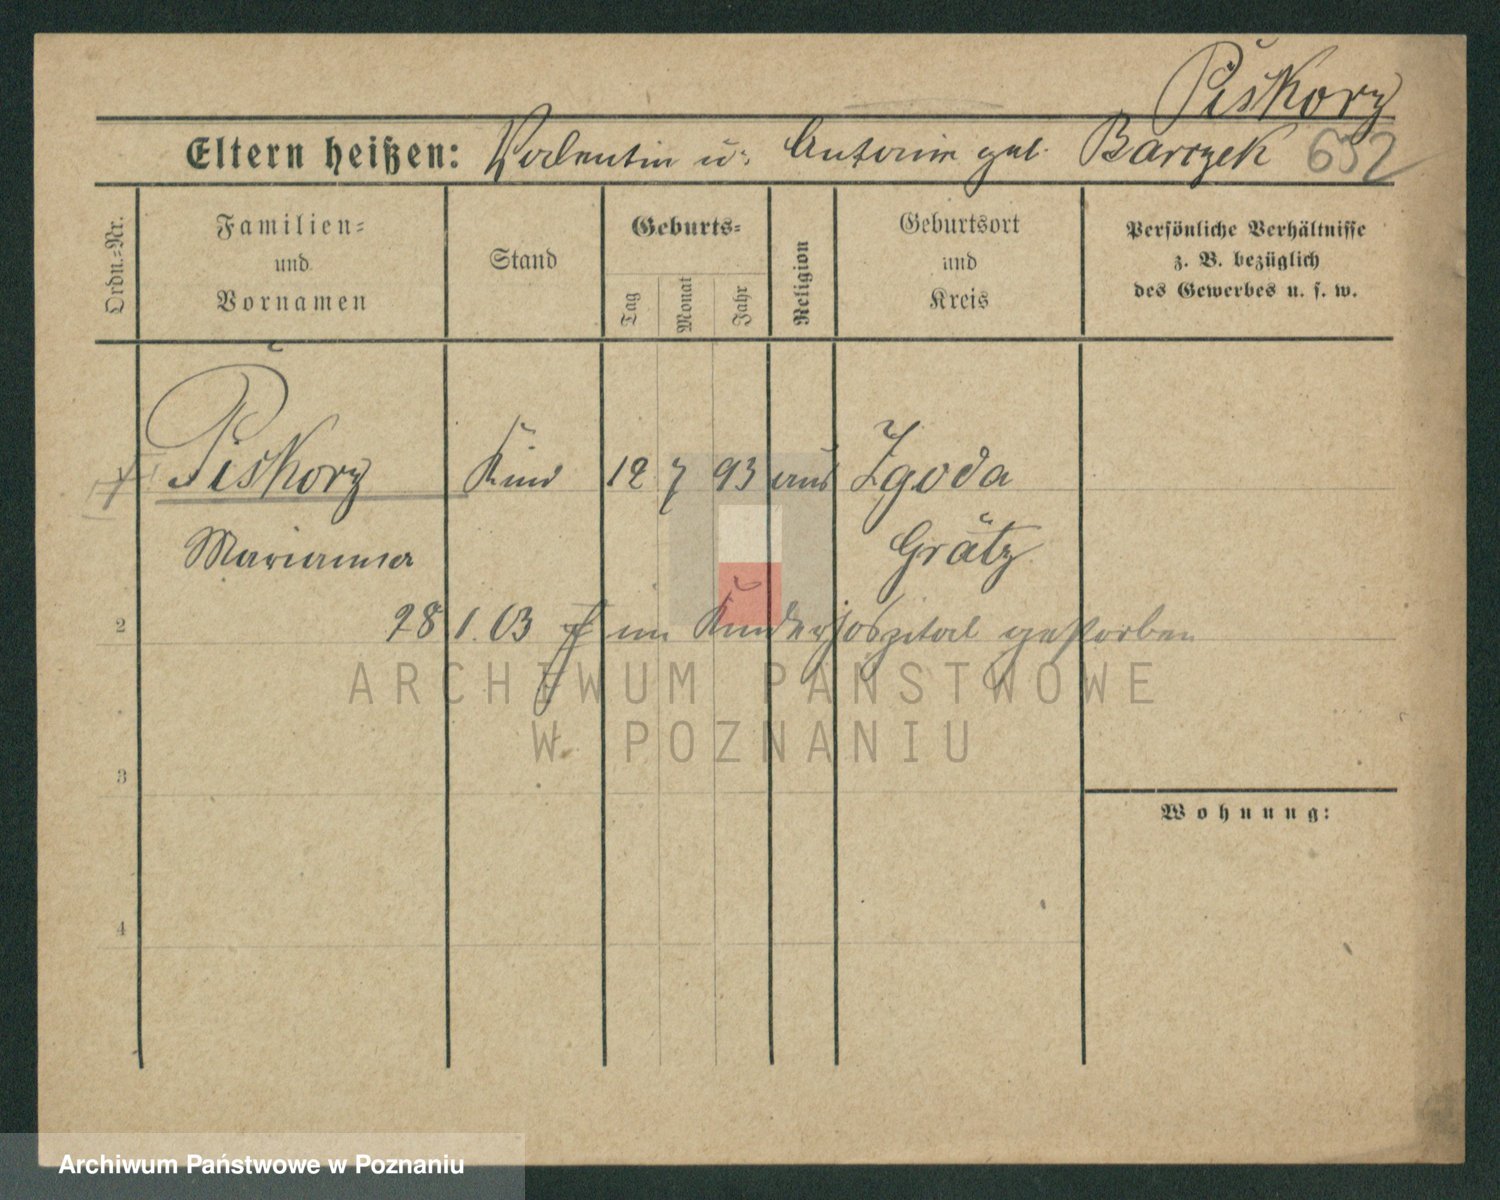 Piskorz
Eltern heißen: Valentin u. Antonie geb. Barczek 652
Ordn.-Nr.
Familien-
und
Vornamen
Stand
Geburts-
Tag
Monat
Jahr
Religion
Geburtsort
und
Kreis
Persönliche Verhältnisse
z. B. bezüglich
des Gewerbes u. s. w.
Piskorz Kind 12 7 93 Zgoda
Marianna Grätz
2
28 1. 03 im Kinderhospital gestorben
ARCHIWUM PAŃSTWOWE
W POZNANIU
3
Wohnung:
4
Archiwum Państwowe w Poznaniu